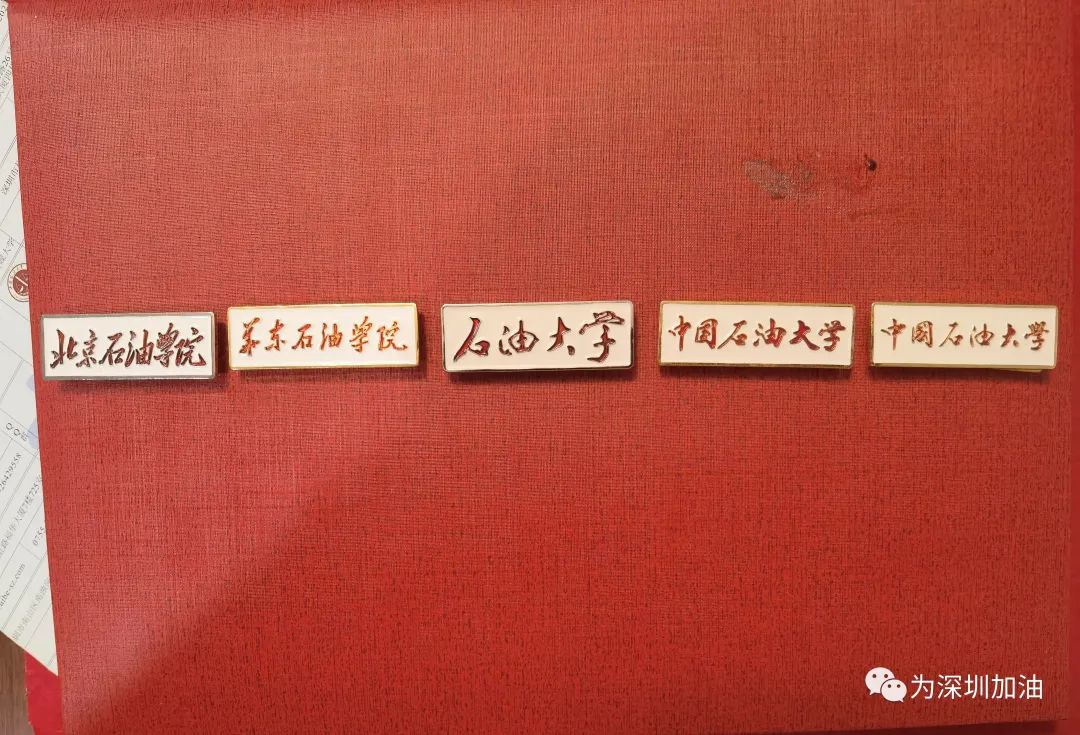 北京石油学院
华东石油学院
石油大学
中国石油大学
中國石油大學
为深圳加油